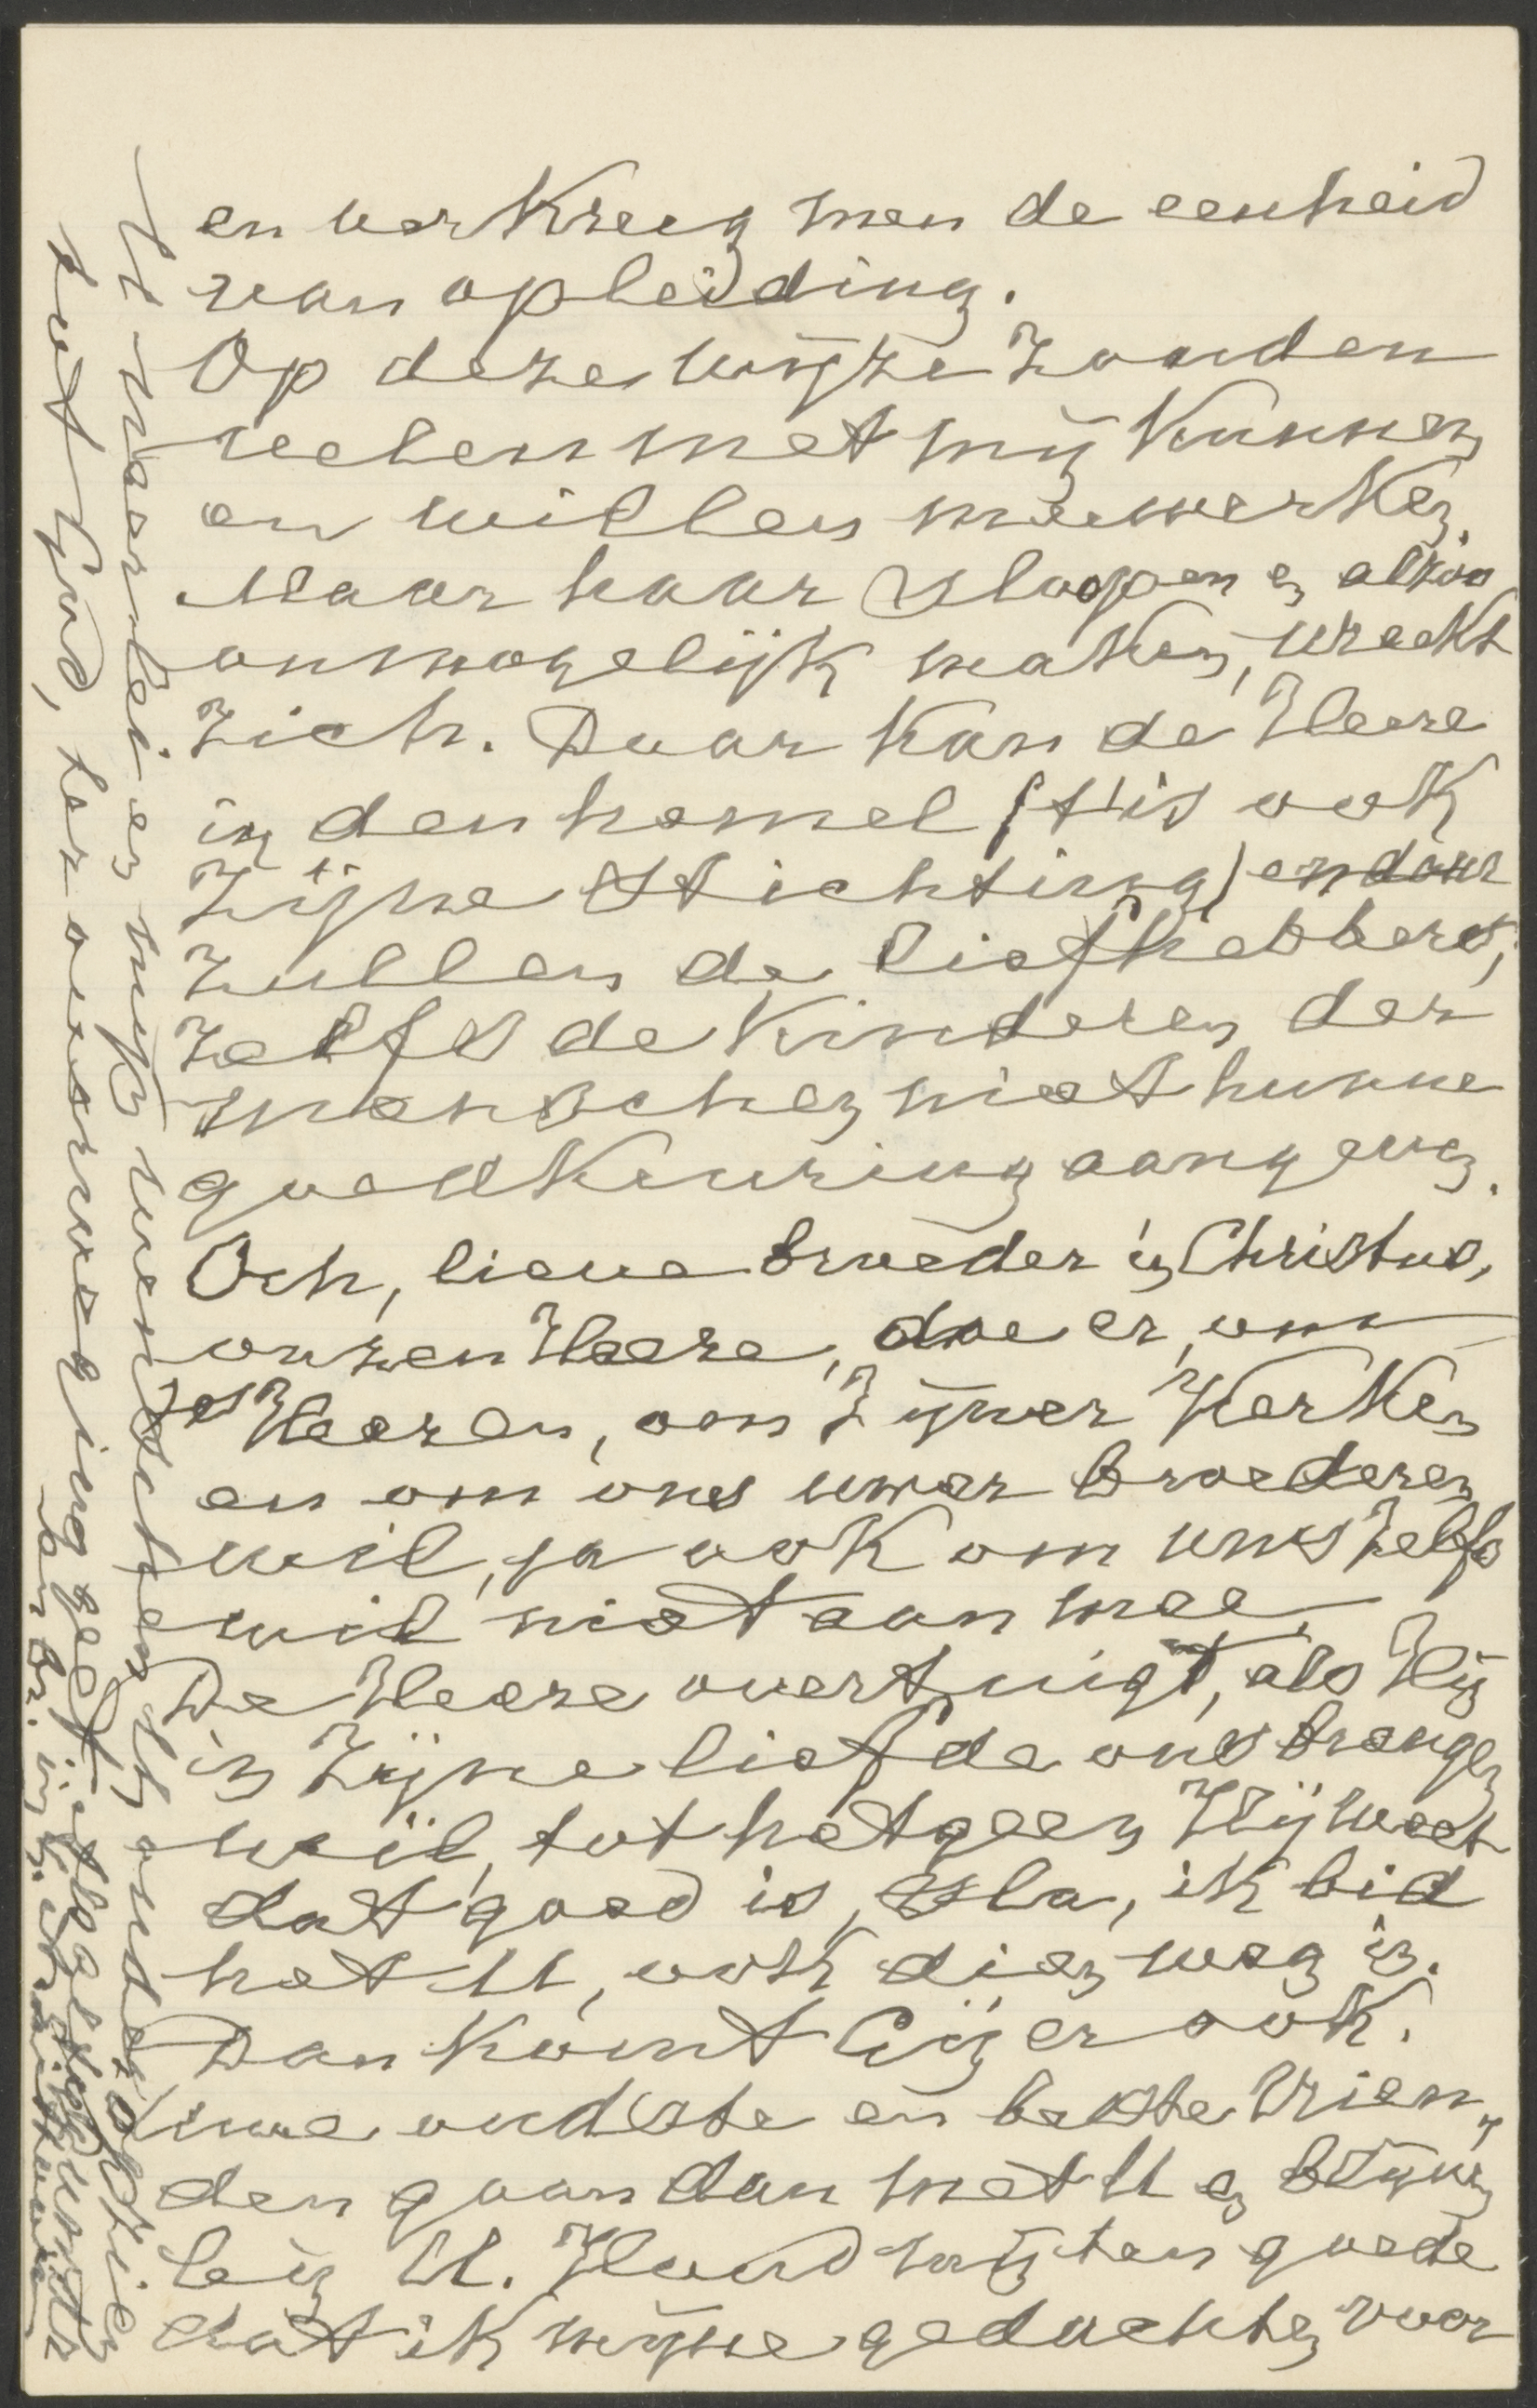 en verkreeg men de eenheid
van opleiding.
Op deze wijze zouden
velen met mij kunnen
en willen meewerken.
Maar haar sloopen en alzoo
onmogelijk maken, wreekt
zich. Daar kan de Heere
in den hemel ('t is ook
Zijne Stichting) en daar
zullen de liefhebbers,
zelfs de kinderen der
menschen niet hunne
goedkeuring aan geven.
Och, lieve broeder in Christus,
onzen Heere, doe er, om
des Heeren, om Zijner Kerken
en om ons uwer broederen
wil, ja ook om uws zelfs
wil niet aan mee.
De Heere overtuigt, als Hij
in Zijne liefde ons brengen
wil, tot hetgeen Hij weet
dat goed is, Sla, ik bid
het U, ook dien weg in.
Dan komt Gij er ook.
Uwe oudste en beste vrien„
den gaan dan met U en blijven
bij U. Houd mij ten goede
dat ik mijne gedachten voor
U neerlei en mijn wenschen U onder
tot God, ter overweging geef.